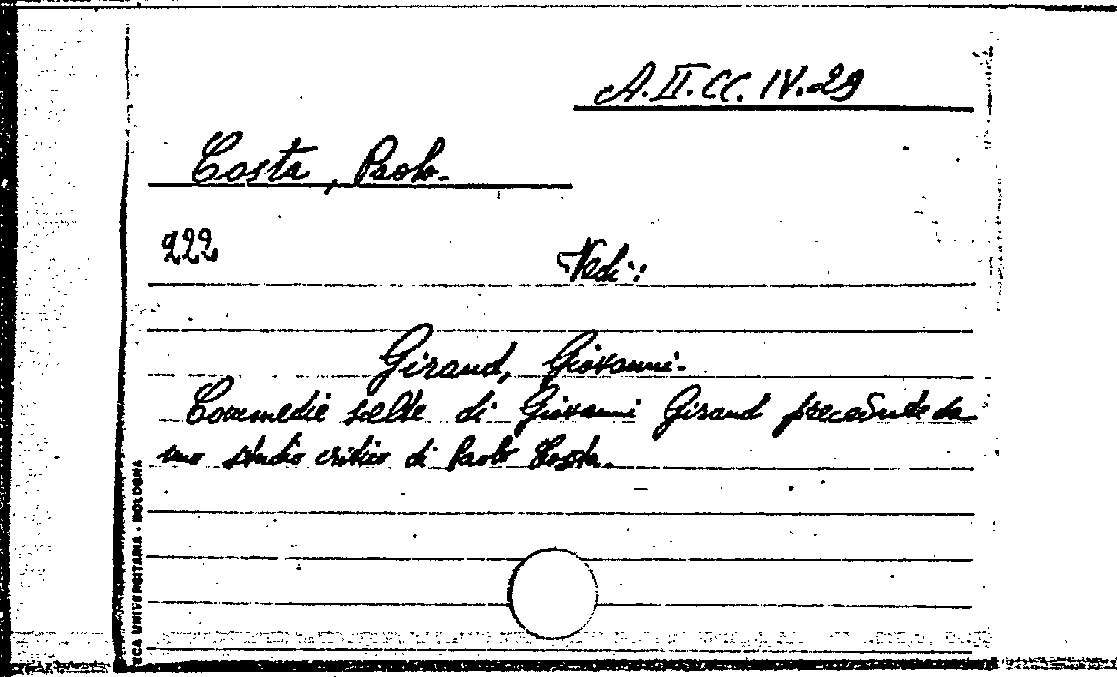 A.II.CC.IV.29
Costa, Paolo.
222
Vedi:
Giraud, Giovanni.
Commedie scelte di Giovanni Giraud precedute da
uno studio critico di Paolo Costa.
TECA UNIVERSITARIA - BOLOGNA